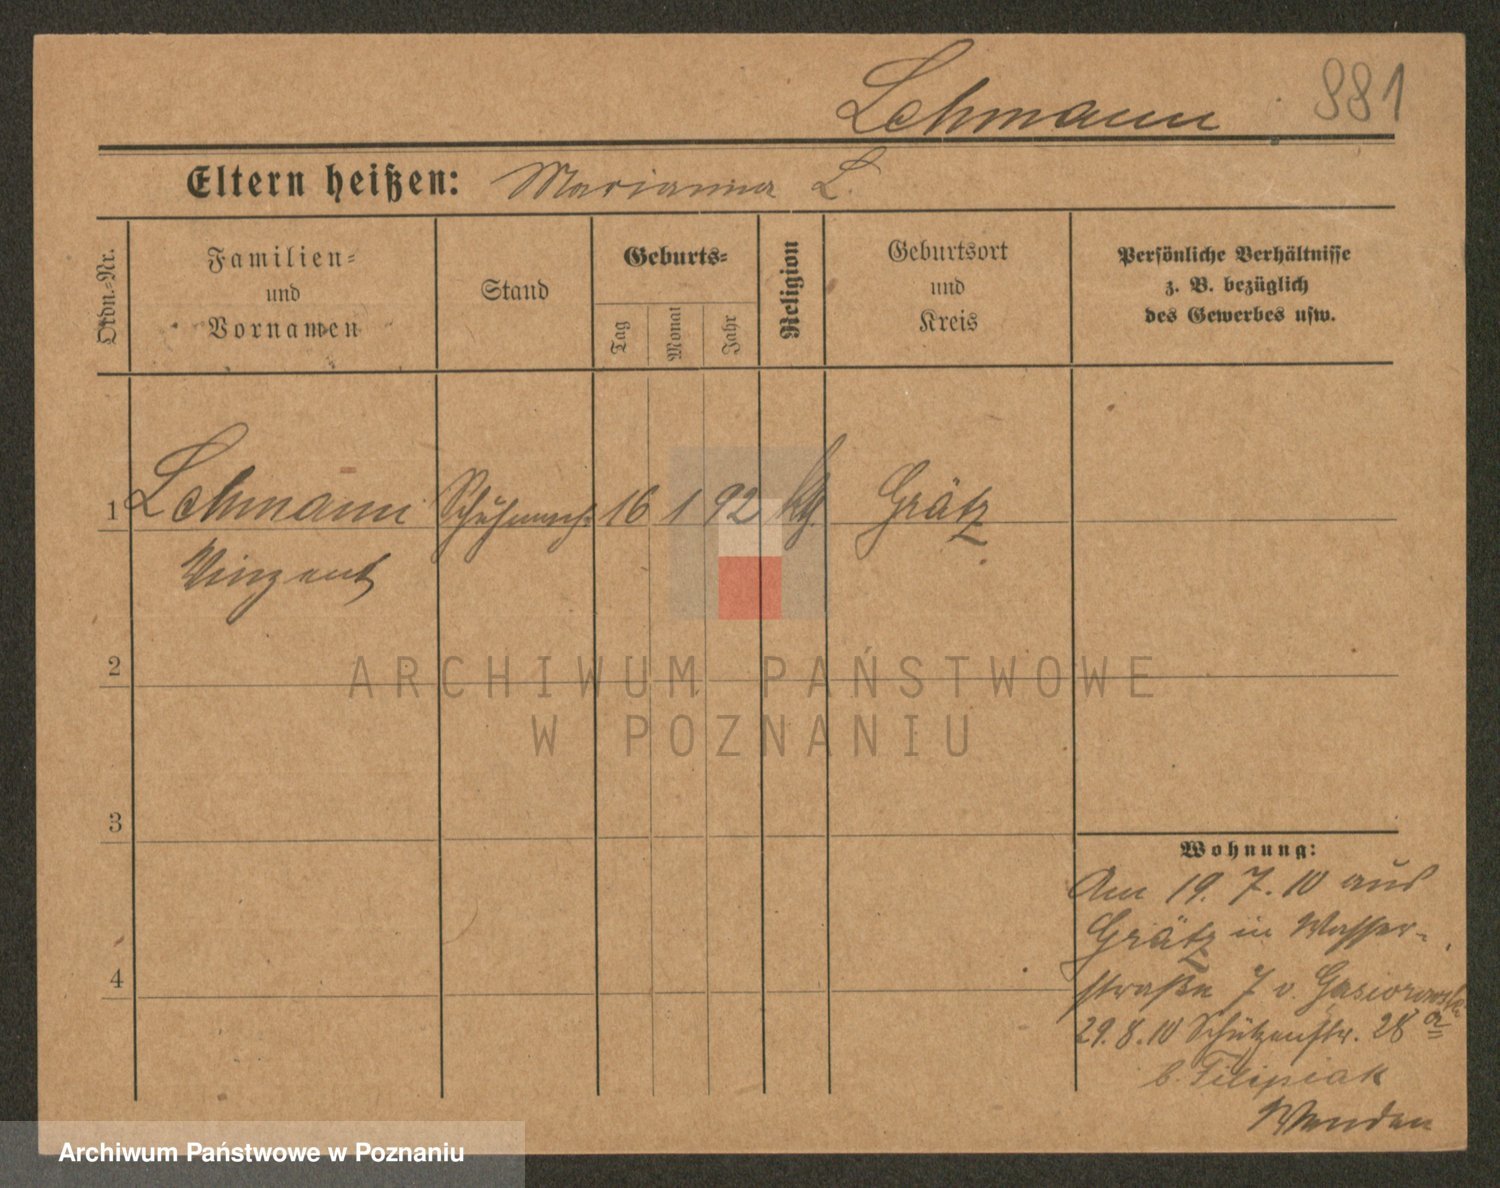 Lehmann
881
Eltern heißen: Marianna L.
Lfdn.-Nr.
Familien-
und
Vornamen
Stand
Geburts-
Tag
Monat
Jahr
Religion
Geburtsort
und
Kreis
Persönliche Verhältnisse
z. B. bezüglich
des Gewerbes usw.
1 Lehmann Schuhmach. 16 1 92 kth. Grätz
Vinzent
2
3
4
Wohnung:
Am 19.7.10 aus
Grätz in Wasser-
straße 7 b. Gasiorowska
29.8.10 Schützenstr. 28a
b. Filipiak
Wenden
ARCHIWUM PAŃSTWOWE
W POZNANIU
Archiwum Państwowe w Poznaniu